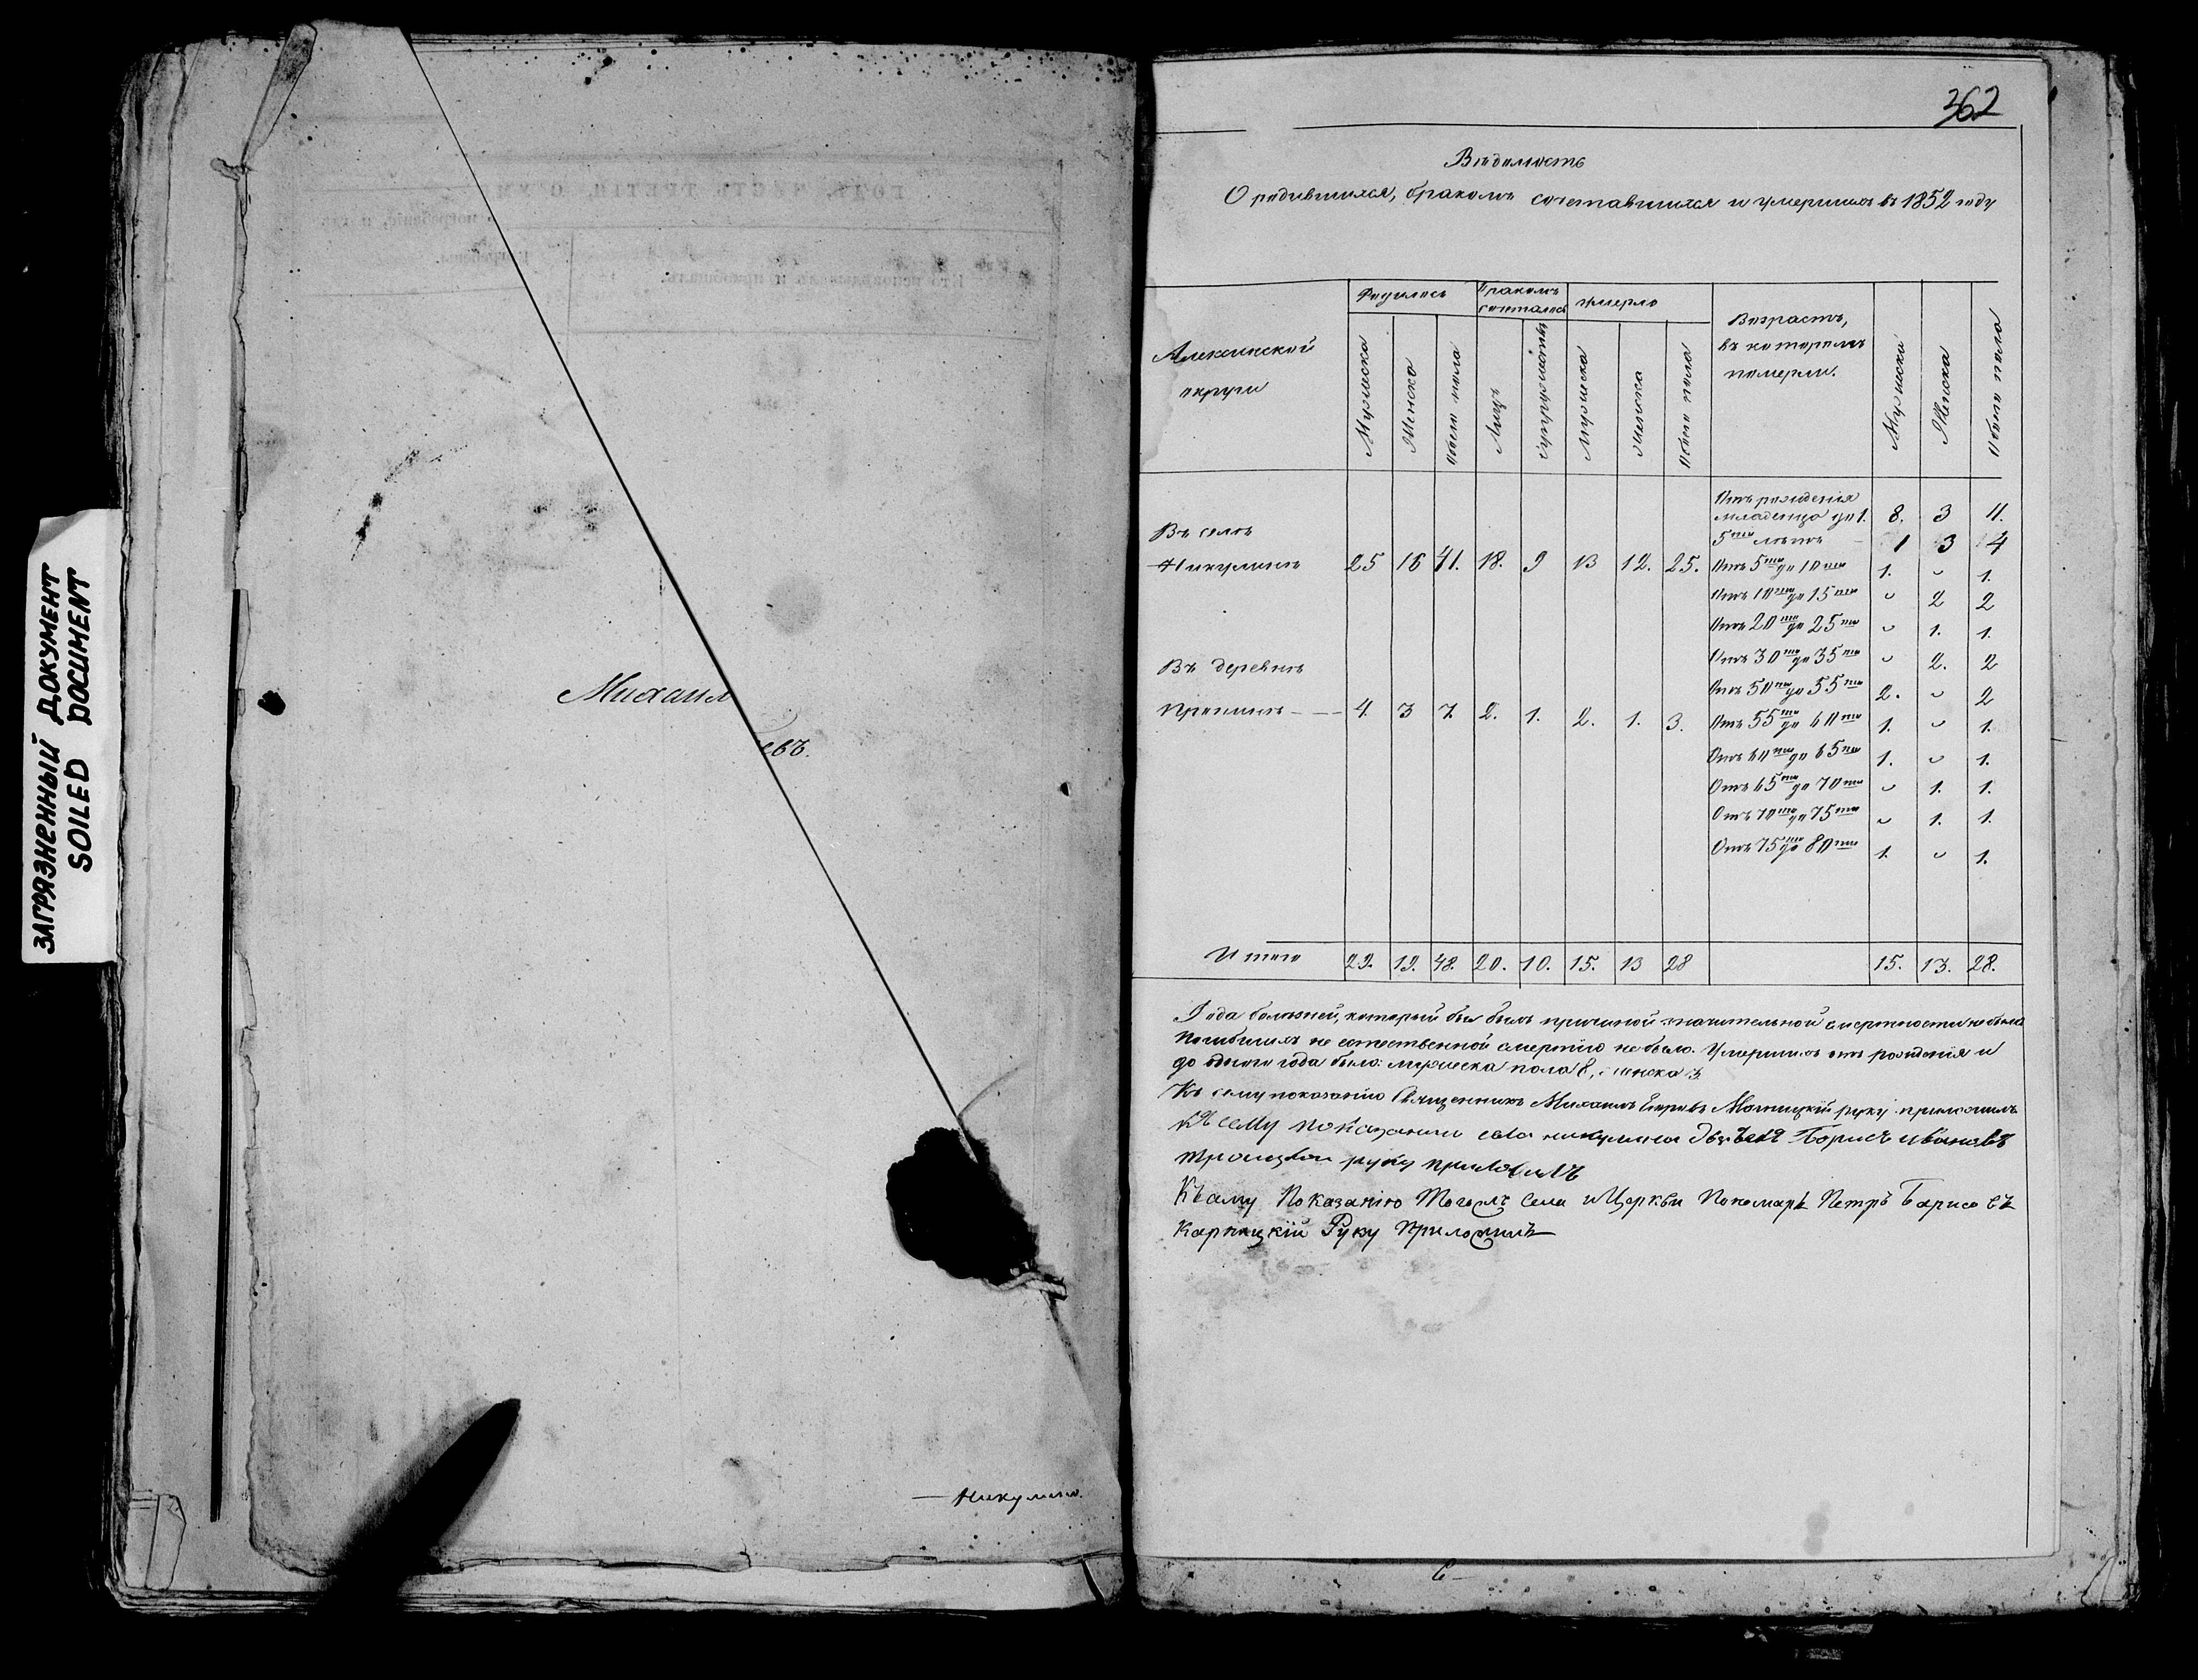 ЗАГРЯЗНЕННЫЙ ДОКУМЕНТ
SOILED DOCUMENT
Михаил
евъ.
Никулина.
362
Вѣдомость
О родившихся, бракомъ сочетавшихся и умершихъ въ 1852 году
Алексинской округи
Родилось
Бракомъ сочталось
Умерло
Возрастъ, въ которомъ померли.
Мужеска
Женска
Обоего пола
Лицъ
Супружествъ
Мужеска
Женска
Обоего пола
Мужеска
Женска
Обоего пола
Въ селѣ
Никулинѣ 25 16 41. 18. 9 13 12. 25.
Въ деревнѣ
4. 3 7. 2. 1. 2. 1. 3.
Отъ рожденія
младенца до 1. 8. 3 11.
5ти лѣтъ 1 3 4
Отъ 5ти до 10ти 1. 1.
Отъ 10ти до 15ти 2 2
Отъ 20ти до 25ти 1. 1.
Отъ 30ти до 35ти 2. 2
Отъ 50ти до 55ти 2. 2
Отъ 55ти до 60ти 1. 1.
Отъ 60ти до 65ти 1. 1.
Отъ 65ти до 70ти 1. 1.
Отъ 70ти до 75ти 1. 1.
Отъ 75ти до 80ти 1. 1.
Итого 29. 19. 48. 20. 10. 15. 13 28 15. 13. 28.
Рода болѣзней, который бы былъ причиной значительной смертности не было
Погибшихъ не естественной смертію не было. Умершихъ отъ рожденія и
до одного года было: мужеска пола 8, женска 3.
Къ сему показанію Священникъ Михаилъ руку приложилъ
Къ сему показанію села никулина Борисъ Ивановъ
троицкой руку приложилъ
Къ сему Показанію Тогожъ Села и Церкви Пономарь Петръ Борисовъ
Карницкій Руку Приложилъ